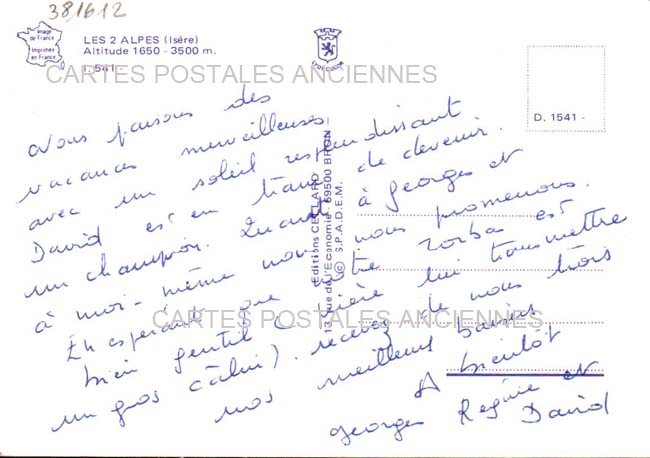 38/612
Image de France
Imprimé en France
LES 2 ALPES (Isère)
Altitude 1650 - 3500 m.
1.541 -
LYOFCOLOR
CARTES POSTALES ANCIENNES
D. 1541 -
Nous passons des
vacances merveilleuses
avec un soleil resplendissant
David est en train de devenir
un champion. Quant à Georges et
à moi-même nous nous promenons.
En espérant que votre Zorbas est
bien gentil (prière lui transmettre
un gros câlin). recevez de nous trois
nos meilleurs baisers
A bientôt
Georges Regine et
David
Editions CELLARD
13, rue de l'Economie - 69500 BRON
© S.P.A.D.E.M.
CARTES POSTALES ANCIENNES